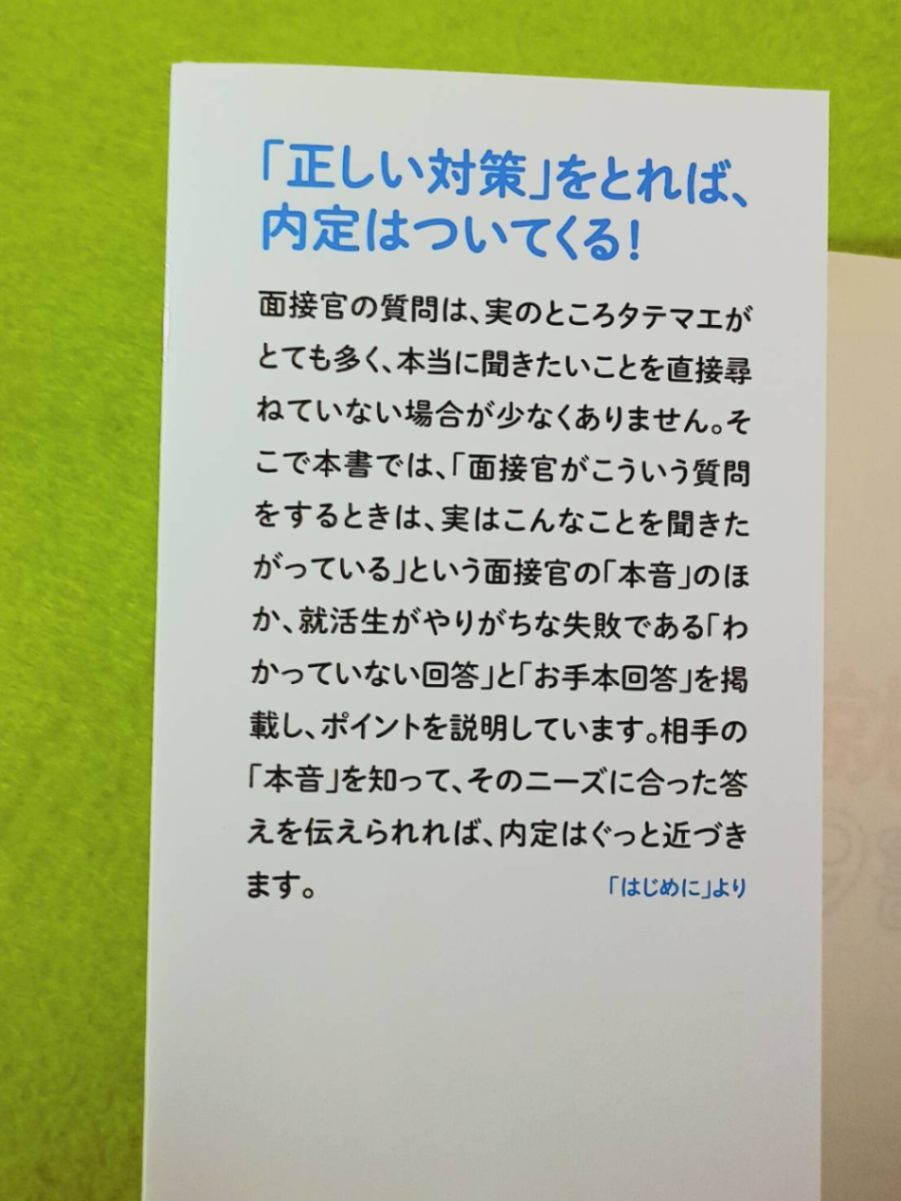 「正しい対策」をとれば、
内定はついてくる!
面接官の質問は、実のところタテマエが
とても多く、本当に聞きたいことを直接尋
ねていない場合が少なくありません。そ
こで本書では、「面接官がこういう質問
をするときは、実はこんなことを聞きた
がっている」という面接官の「本音」のほ
か、就活生がやりがちな失敗である「わ
かっていない回答」と「お手本回答」を掲
載し、ポイントを説明しています。相手の
「本音」を知って、そのニーズに合った答
えを伝えられれば、内定はぐっと近づき
ます。
「はじめに」より